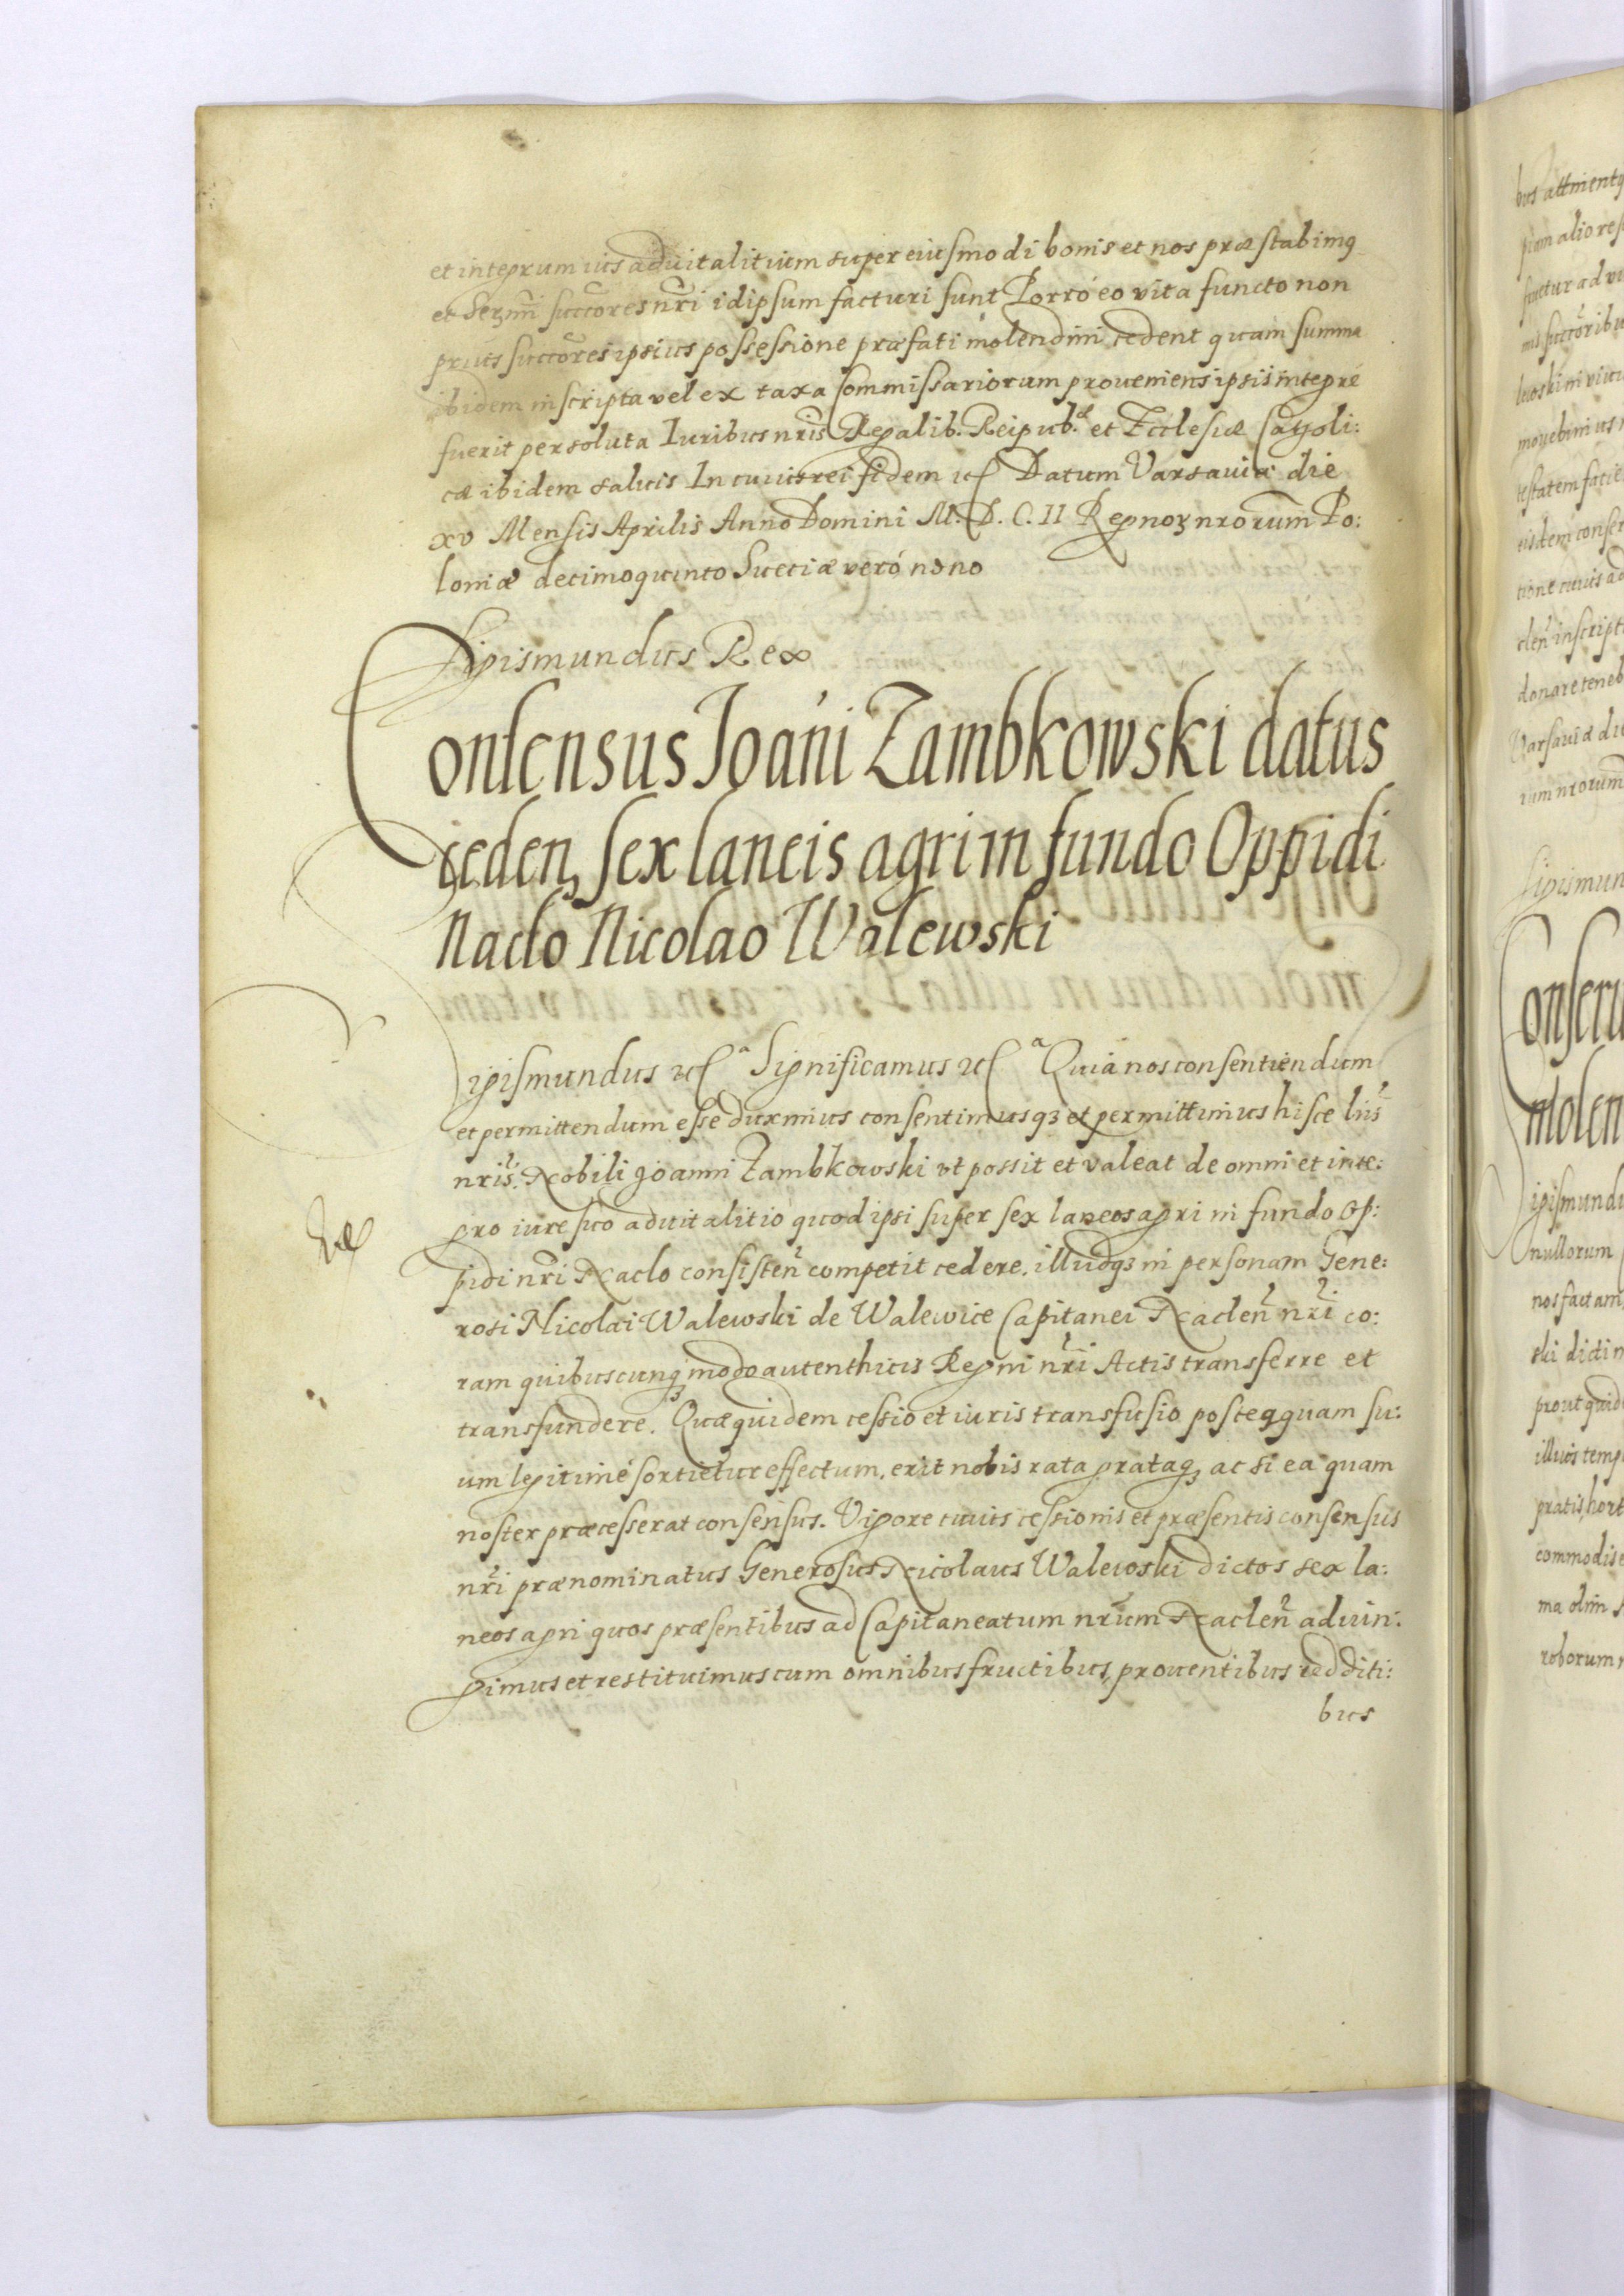 et integrum ius aduitalitium super eiusmodi bonis et nos præstabimq
et Serꝫmi succores nri idipsum facturi sunt Porró eo vita functo non
prius succores ipsius possessione præfati molendini cedent quam summa
ibidem inscripta vel ex taxa Commissariorum proueniens ipsis integré
fuerit persoluta Iuribus nris Regalib. Reipub.æ et Ecclesiæ Catholi:
cæ ibidem saluis In cuius rei fidem etc Datum Varsauiæ die
xv Mensis Aprilis Anno Domini M. D. C. II Regnoꝝ nrorum Po:
loniæ decimoquinto Sueciæ veró nono
Sigismundus Rex
Consensus Ioáni Zambkowski datus
cedenꝫ sex laneis agri in fundo Oppidi
Naclo Nicolao Walewski
Sigismundus etc a Significamus etc a Quia nos consentiendum
et permittendum esse duximus consentimusqꝫ et permittimus hisce lris
nris. Nobili Joanni Zambkowski vt possit et valeat de omni et inte:
gro iure suo aduitalitio quod ipsi super sex laneos agri in fundo Op:
pidi nri Naclo consisten competit cedere, illudqꝫ in personam Gene:
rosi Nicolai Walewski de Walewice Capitanei Naclen nri co:
ram quibuscunqꝫ modo autenthicis Regni nri Actis transferre et
transfundere. Quæquidem cessio et iuris transfusio posteaquam su:
um legitimé sortietur effectum, erit nobis rata grataqꝫ ac si ea quam
noster præcesserat consensus. Vigore cuius cessionis et præsentis consensus
nri prænominatus Generosus Nicolaus Walewski dictos sex la:
neos agri quos præsentibus ad Capitaneatum nrum Naclen aduin:
gimus et restituimus cum omnibus fructibus, prouentibus redditi:
bus